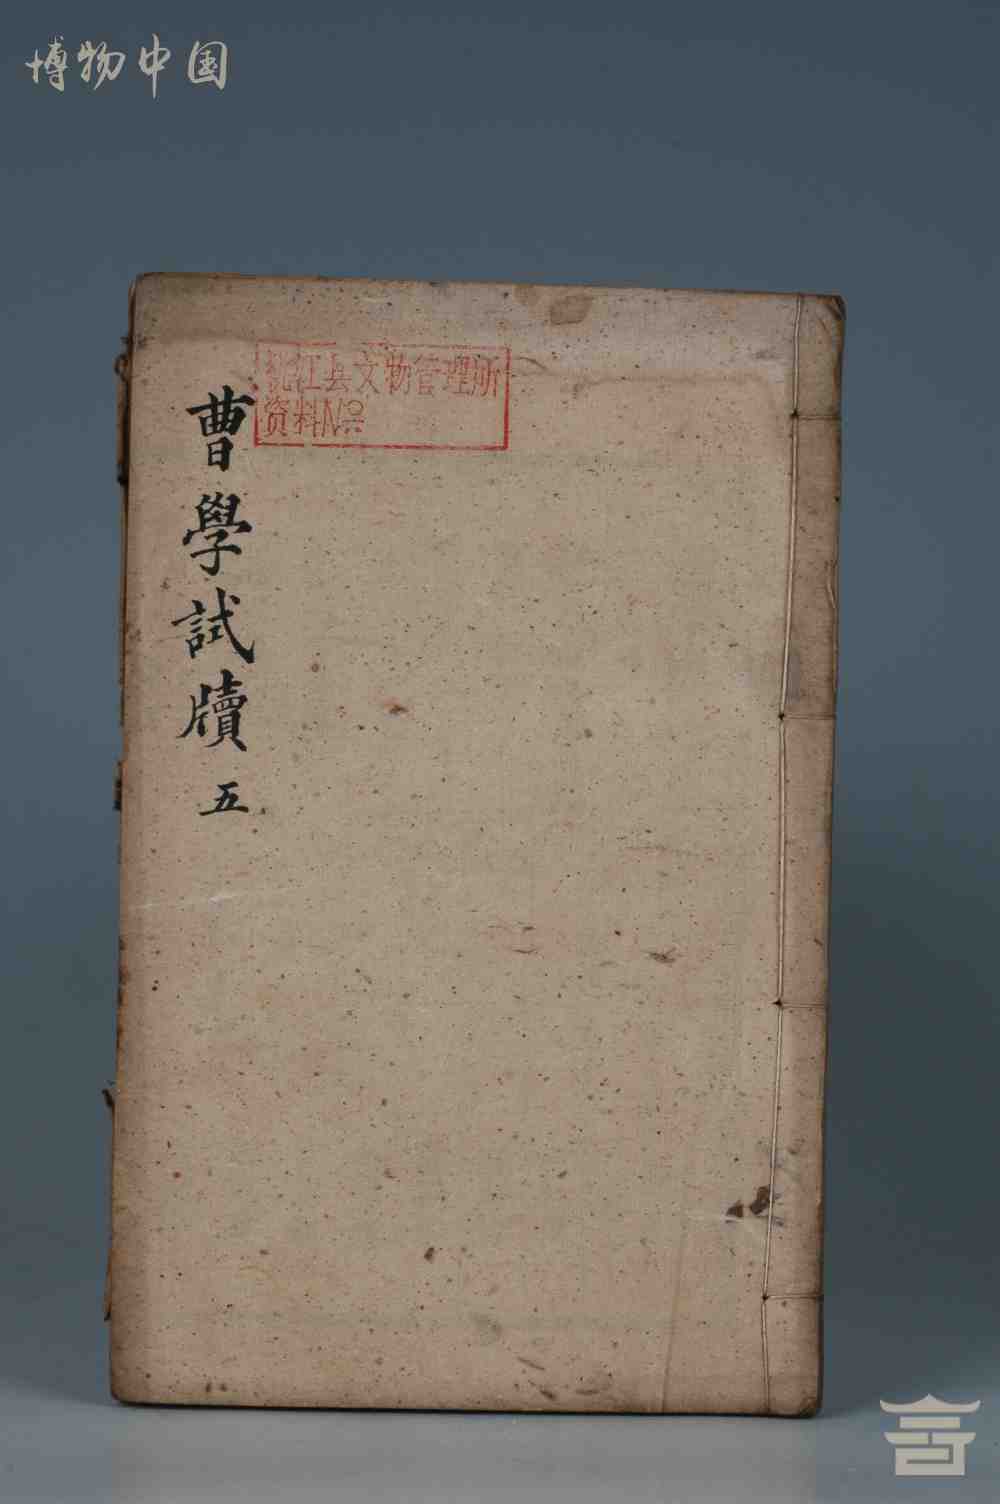 博物中国
桃江县文物管理所
资料No
曹學試牘 五